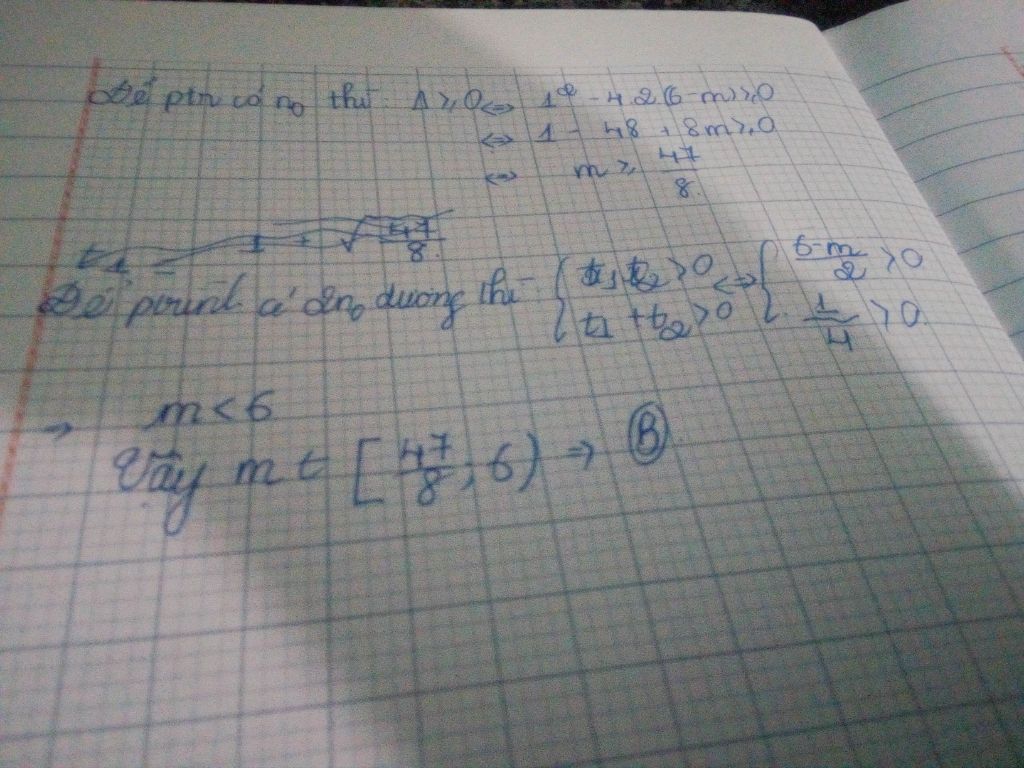 Để ptr có n₀ thì Δ ≥ 0 ⇔ 1² - 4.2(6-m) ≥ 0
⇔ 1 - 48 + 8m ≥ 0
⇔ m ≥ 47/8.
t1 = 1 + √47/8.
Để ptrình có 2n₀ dương thì { t1.t2 > 0 ⇔ { 6-m/2 > 0
t1 + t2 > 0 1/4 > 0.
→ m < 6
Vậy m ∈ [47/8; 6) → B